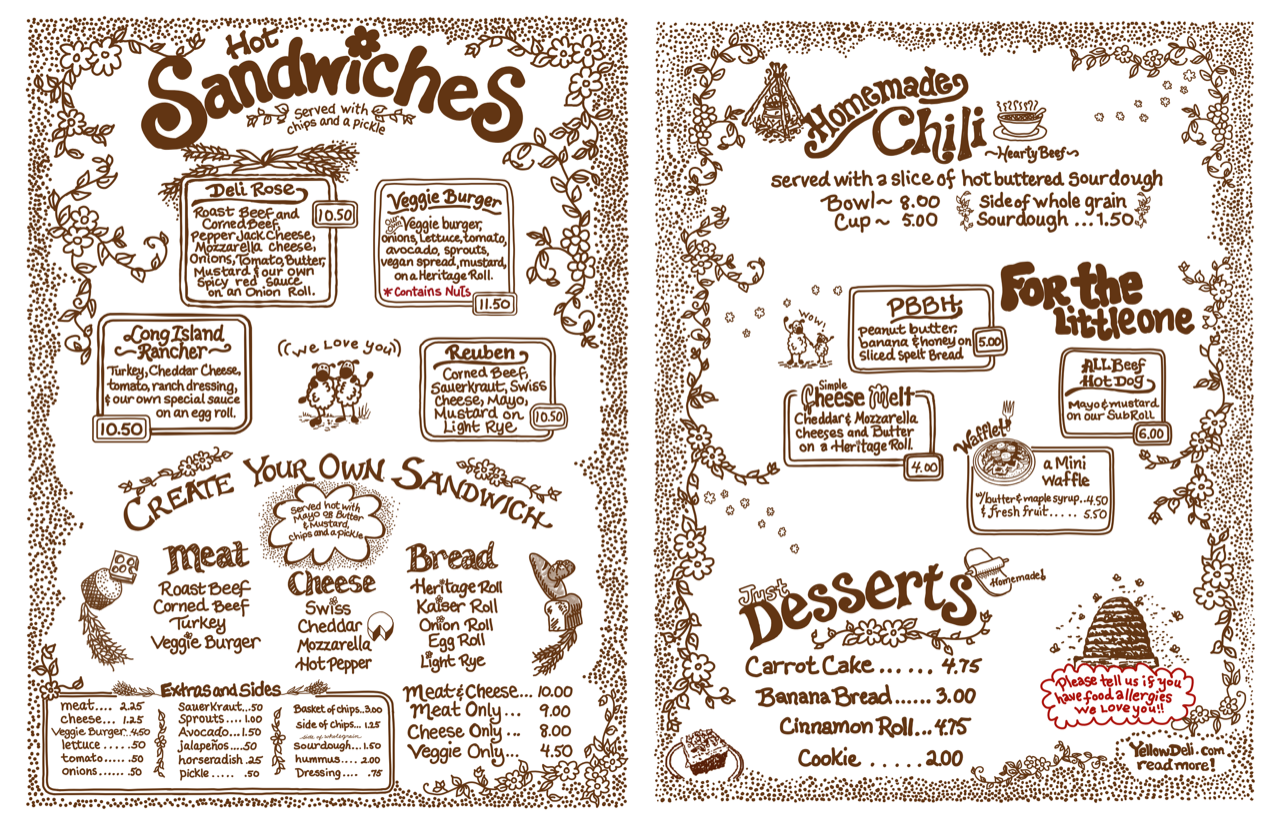 Hot
Sandwiches
served with
chips and a pickle
Deli Rose
10.50
Roast Beef and
Corned Beef,
Pepper Jack Cheese,
Mozzarella cheese,
Onions, Tomato, Butter,
Mustard & our own
Spicy red sauce
on an Onion Roll.
Veggie Burger
Our own Veggie burger,
onions, Lettuce, tomato,
avocado, sprouts,
vegan spread, mustard,
on a Heritage Roll.
*Contains Nuts
11.50
Long Island
Rancher
Turkey, Cheddar Cheese,
tomato, ranch dressing,
& our own special sauce
on an egg roll.
10.50
((we Love you))
Reuben
Corned Beef,
Sauerkraut, Swiss
Cheese, Mayo,
Mustard on
Light Rye
10.50
Create Your Own Sandwich
Served hot with
Mayo or Butter
& Mustard,
chips and a pickle
Meat
Roast Beef
Corned Beef
Turkey
Veggie Burger
Cheese
Swiss
Cheddar
Mozzarella
Hot Pepper
Bread
Heritage Roll
Kaiser Roll
Onion Roll
Egg Roll
Light Rye
Extras and Sides
meat.... 2.25
cheese... 1.25
Veggie Burger..4.50
lettuce .....50
tomato......50
onions......50
Sauerkraut...50
Sprouts.... 1.00
Avocado...1.50
jalapeños....50
horseradish .25
pickle .... .50
Basket of chips..3.00
side of chips... 1.25
side of wholegrain
sourdough...1.50
hummus.... 2.00
Dressing.... .75
Meat & Cheese... 10.00
Meat Only... 9.00
Cheese Only... 8.00
Veggie Only... 4.50
Homemade
Chili
~Hearty Beef~
served with a slice of hot buttered Sourdough
Bowl~ 8.00
Cup ~ 5.00
Side of whole grain
Sourdough ...1.50
For the
Little one
Wow!
PBBH
peanut butter,
banana & honey on
Sliced Spelt Bread
5.00
ALL Beef
Hot Dog
Mayo & mustard
on our Sub Roll
6.00
Simple
Cheese Melt
Cheddar & Mozzarella
Cheeses and Butter
on a Heritage Roll.
4.00
Waffle!
a Mini
waffle
w/butter & maple syrup..4.50
& fresh fruit..... 5.50
Just
Desserts
Homemade!
Carrot Cake...... 4.75
Banana Bread...... 3.00
Cinnamon Roll...4.75
Cookie ...... 2.00
Please tell us if you
have food allergies
we Love you!!
YellowDeli.com
read more!